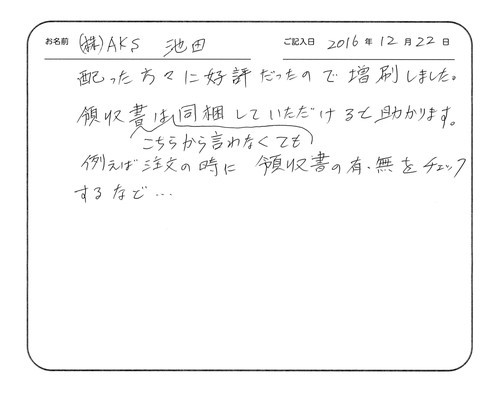 お名前 (株)AKS 池田 ご記入日 2016年 12月 22日
配った方々に好評だったので増刷しました。
領収書は同梱していただけると助かります。
こちらから言わなくても
例えば注文の時に 領収書の有、無をチェック
するなど…